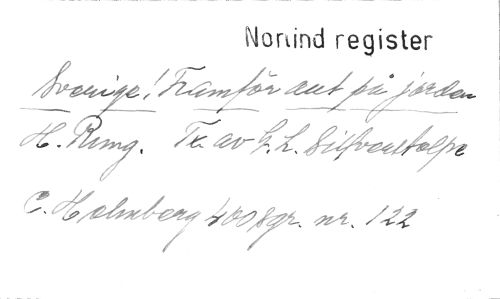 Norlind register
Sverige! Framför allt på jorden
H. Rung. Tx. av G. L. Silfverstolpe
C. Holmberg 400 sgr. nr. 122